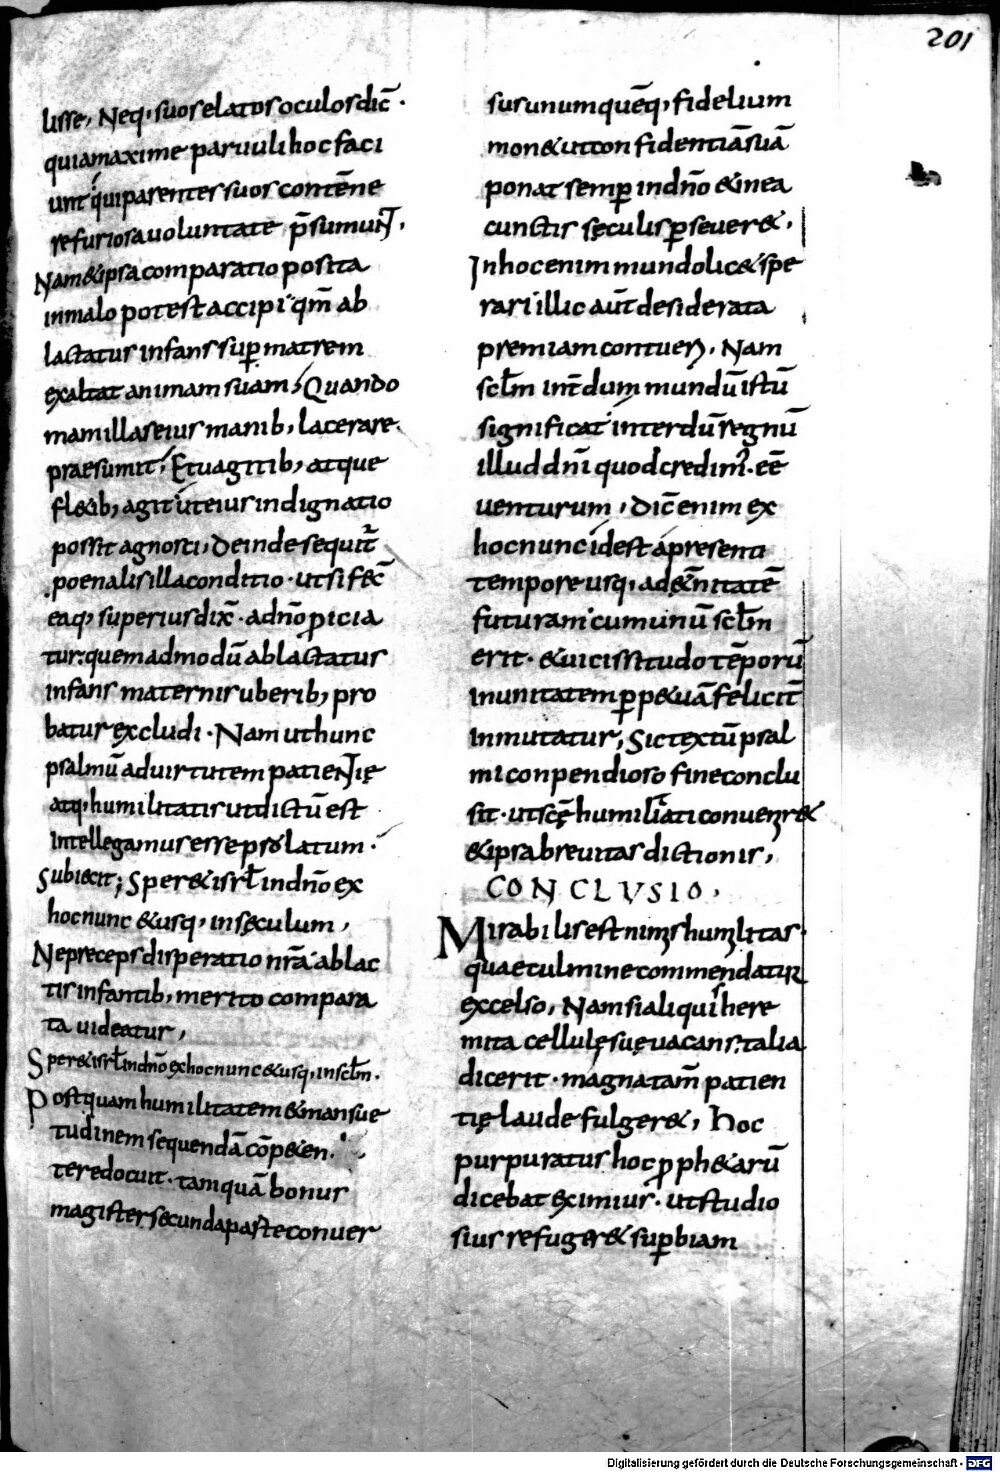 201
lisse, Neq; suos elatos oculos dic̄.
quia maxime paruuli hoc faci
unt qui parentes suos contēne
re furiosa uoluntate p̄sumuNT,
Nam & ipsa comparatio posita
in malo potest accipi qm̄ ab
lactatus infans sup̲ matrem
exaltat animam suam; Quando
mamillas eius manib; lacerare
praesumit; Et uagitib; atque
fl&ib; agit ut eius indignatio
possit agnosci; Deinde sequit̄
poenalis illa conditio · ut si fec̄
eaq; superius dix̄ · a dn̄o p̲icia
tur: quemadmodū ablactatus
infans maternis uberib; pro
batur excludi · Nam ut hunc
psalmū ad uirtutem patieNTię
atq; humilitatis ut dictū est
intellegamus esse prolatum ·
subiecit; Sper& isrl̄ in dn̄o ex
hoc nunc &usq; in sęculum,
Ne preceps disperatio nr̄a ablac
tis infantib; merito compara
ta uideatur,
Sper& isrl̄ in dn̄o ex hoc nunc &usq; in scl̄m.
Postquam humilitatem & mansue
tudinem sequendā cōp&en
ter edocuit · tamquā bonus
magister secunda parte conuer
sus unumquēq; fidelium
mon& ut confidentiā suā
ponat semp̲ in dn̄o & in ea
cunctis sęculis p̲seuer&,
In hoc enim mundo lic& spe
rari illic aūt desiderata
premia contuer̄. Nam
scl̄m int̄dum mundū istū
significat interdū regnū
illud dn̄i quod credim̄. eē
uenturum, Dic̄ enim ex
hoc nunc id est a presenti
tempore usq; ad &n̄itatē
futuram cum unū scl̄m
erit · & uicissitudo tēporū
in unitatem p̲p&uā felicit̄
inmutatur; Sic textū psal
mi conpendioso fine conclu
sit · ut scę̄ humilitati conuenir&
& ipsa breuitas dictionis,
CONCLVSIO,
Mirabilis est nimis humilitas
quae culmine commendatur
excelso, Nam si aliquis here
mita cellulę suę uacans talia
dicerit · magna tam̄ patien
tię laude fulger&, hoc
purpuratus hoc p̲ph&arū
dicebat eximius · ut studio
sius refuger& sup̲biam
Digitalisierung gefördert durch die Deutsche Forschungsgemeinschaft - DFG